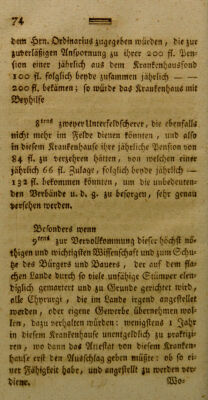 74
dem Hrn. Ordinarius zugegeben würden, die zur
zuverläßigen Anspornung zu ihrer 200 fl. Pen-
sion einer jährlich aus dem Krankenhausfond
100 fl. folglich beyde zusammen jährlich —
200 fl. bekämen; so würde das Krankenhaus mit
Beyhilfe
8tens zweyer Unterfeldscherer, die ebenfalls
nicht mehr im Felde dienen könnten, und also
in diesem Krankenhause ihre jährliche Pension von
84 fl. zu verzehren hätten, von welchen einer
jährlich 66 fl. Zulage, folglich beyde jährlich —
132 fl. bekommen könnten, um die unbedeuten-
den Verbände u. d. g. zu besorgen, sehr genau
versehen werden.
Besonders wenn
9tens zur Vervollkommung dieser höchst nö-
thigen und wichtigsten Wissenschaft und zum Schu-
tze des Bürgers und Bauers, der auf dem fla-
chen Lande durch so viele unfähige Stümper elen-
diglich gemartert und zu Grunde gerichtet wird,
alle Chyrurgi, die im Lande irgend angestellet
werden, oder eigene Gewerbe übernehmen wol-
len, dazu verhalten würden: wenigstens 1 Jahr
in diesem Krankenhause unentgeldlich zu prakti-
ziren, wo dann das Attestat von diesem Kranken-
hause erst den Ausschlag geben müßte: ob so ei-
ner Fähigkeit habe, und angestellt zu werden ver-
diene.
Wo-